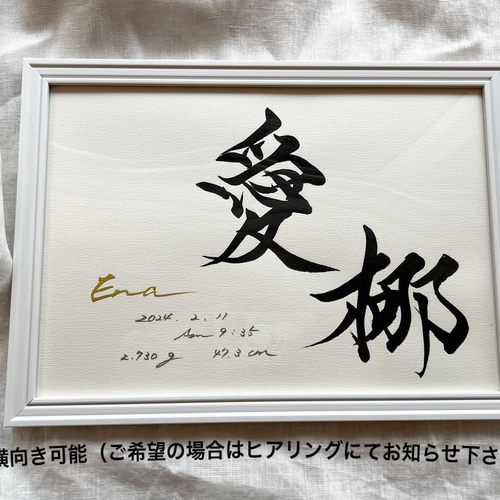 愛梛
Ena
2024. 2. 11
Am 9:35
2.730 g 47.3 cm
横向き可能（ご希望の場合はヒアリングにてお知らせ下さ